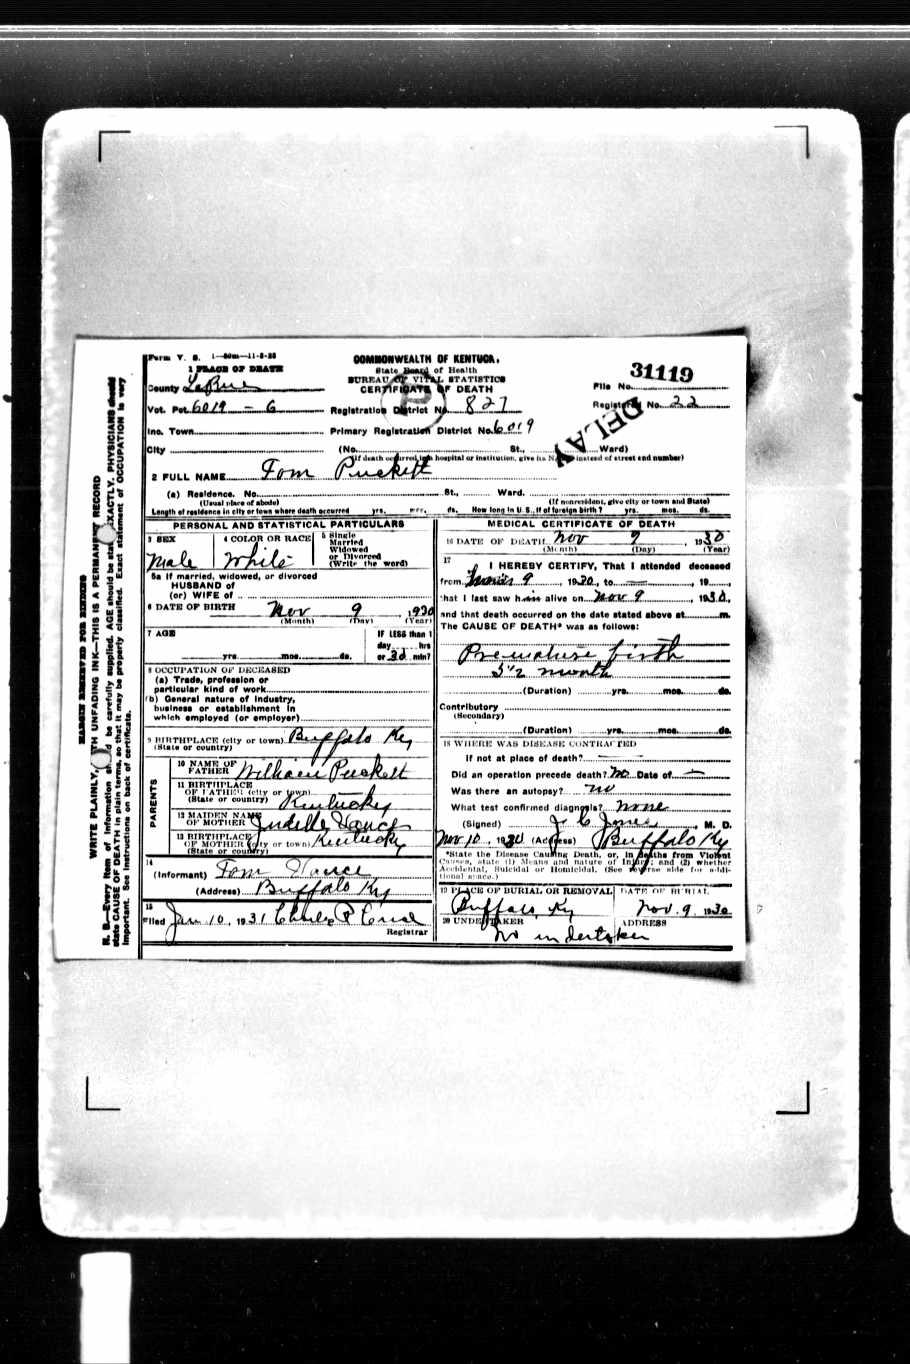 Form V. S. 1—50m—11-8-28
COMMONWEALTH OF KENTUCKY.
State Board of Health
BUREAU OF VITAL STATISTICS
CERTIFICATE OF DEATH
1 PLACE OF DEATH
County LaRue
File No. 31119
Vot. Pct. 6019 - 6
Registration District No. 827
Registered No. 22
DELAY
Inc. Town
Primary Registration District No. 6019
City (No. St., Ward)
(If death occurred in a hospital or institution, give its NAME instead of street and number)
2 FULL NAME Tom Puckett
(a) Residence. No. St., Ward.
(Usual place of abode) (If nonresident, give city or town and State)
Length of residence in city or town where death occurred yrs. mos. ds. How long in U. S., if of foreign birth? yrs. mos. ds.
PERSONAL AND STATISTICAL PARTICULARS
3 SEX
Male
4 COLOR OR RACE
White
5 Single
Married
Widowed
or Divorced
(Write the word)
5a If married, widowed, or divorced
HUSBAND of
(or) WIFE of
6 DATE OF BIRTH Nov 9, 1930
(Month) (Day) (Year)
7 AGE
yrs. mos. ds.
IF LESS than 1
day hrs
or 30 min?
8 OCCUPATION OF DECEASED
(a) Trade, profession or
particular kind of work
(b) General nature of industry,
business or establishment in
which employed (or employer)
9 BIRTHPLACE (city or town) Buffalo Ky
(State or country)
PARENTS
10 NAME OF
FATHER William Puckett
11 BIRTHPLACE
OF FATHER (city or town)
(State or country) Kentucky
12 MAIDEN NAME
OF MOTHER Vance
13 BIRTHPLACE
OF MOTHER (city or town) Kentucky
(State or country)
14
(Informant) Tom Vance
(Address) Buffalo Ky
15
Filed Jan 10, 1931
Registrar
MEDICAL CERTIFICATE OF DEATH
16 DATE OF DEATH Nov 9, 1930
(Month) (Day) (Year)
17
I HEREBY CERTIFY, That I attended deceased
from 9 1930, to — , 19
that I last saw h alive on Nov 9, 1930,
and that death occurred on the date stated above at m.
The CAUSE OF DEATH* was as follows:
Premature birth
5½ month
(Duration) yrs. mos. ds.
Contributory
(Secondary)
(Duration) yrs. mos. ds.
18 WHERE WAS DISEASE CONTRACTED
If not at place of death?
Did an operation precede death? No Date of —
Was there an autopsy? no
What test confirmed diagnosis? none
(Signed) J. C. Jones, M. D.
Nov 10, 1930 (Address) Buffalo Ky
*State the Disease Causing Death, or, in deaths from Violent
Causes, state (1) Means and nature of Injury; and (2) whether
Accidental, Suicidal or Homicidal. (See reverse side for addi-
tional space.)
19 PLACE OF BURIAL OR REMOVAL
Buffalo, Ky
DATE OF BURIAL
Nov. 9, 1930
20 UNDERTAKER
No undertaker
ADDRESS
MARGIN RESERVED FOR BINDING
WRITE PLAINLY, WITH UNFADING INK—THIS IS A PERMANENT RECORD
N. B.—Every item of information should be carefully supplied. AGE should be stated EXACTLY. PHYSICIANS should
state CAUSE OF DEATH in plain terms, so that it may be properly classified. Exact statement of OCCUPATION is very
important. See instructions on back of certificate.